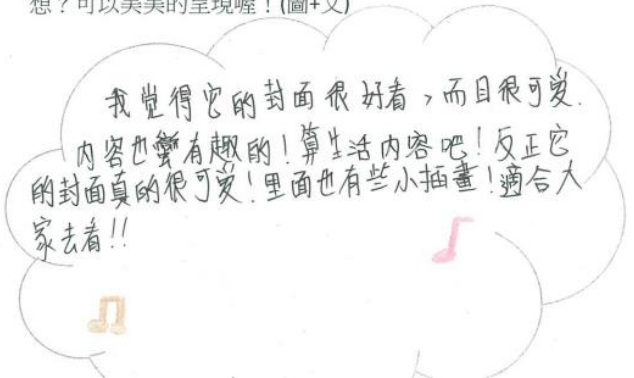 想？可以美美的呈現喔！(圖+文)
我覺得它的封面很好看，而且很可愛.
內容也蠻有趣的！算生活內容吧！反正它
的封面真的很可愛！里面也有些小插畫！適合大
家去看!!